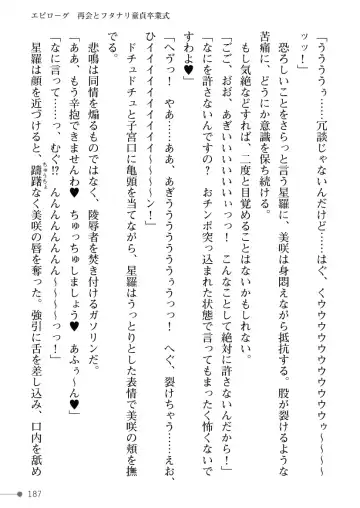 エピローグ　再会とフタナリ童貞卒業式
「うううぅ…、冗談じゃないんだけど……はぐ、くウウウウウウウウウゥゥ〜〜〜〜
ッッ！」
恐ろしいことをさらっと言う星羅に、美咲は身悶えながら抵抗する。股が裂けるような
苦痛に、どうにか意識を保ち続ける。
もし気絶などすれば、二度と目覚めることはないかもしれない。
「ごご、おお、あぎぃいいいいいぃっっ！　こんなことして絶対に許さないんだから！」
「なにを許さないんですの？　おチンポ突っ込まれた状態で言ってもまったく怖くないで
すわよ♥」
「へヴっ！　やぁ……あぁ、あぎうううううぅぅうっっ！　へぐ、裂けちゃう……えお、
ひイイイイイイイイィィイ〜〜〜〜ン！」
ドチュドチュと子宮口に亀頭を当てながら、星羅はうっとりとした表情で美咲の頬を撫
でる。
悲鳴は同情を煽るものではなく、陵辱者を焚き付けるガソリンだ。
「ああ、もう辛抱できませんわ♥　ちゅっちゅしましょう♥　あふぅ〜ん♥」
「なに言って……っ、むぐ!?　んんんんんんんん〜〜〜〜っっ！」
星羅は顔を近づけると、躊躇なく美咲の唇を奪った。強引に舌を差し込み、口内を舐め
187